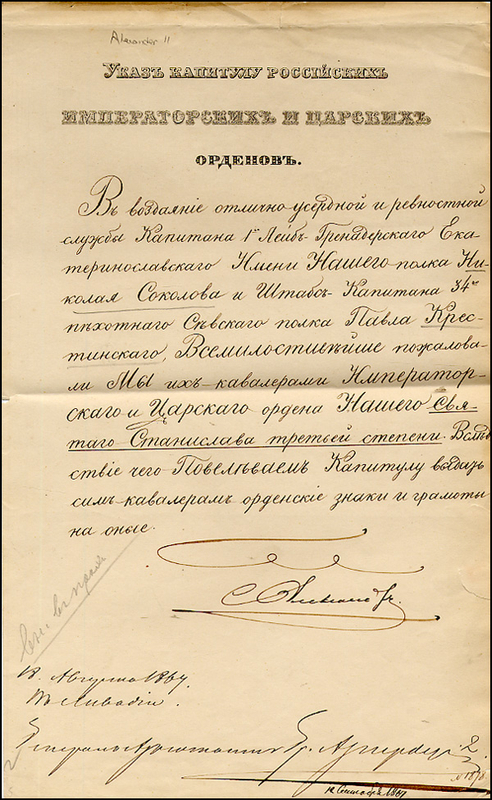 Alexander II
Указъ капитулу россійскихъ
императорскихъ и царскихъ
орденовъ.
Въ воздаяніе отлично-усердной и ревностной
службы Капитана 1го Лейбъ-Гренадерскаго Ека-
теринославскаго Имени Нашего полка Ни-
колая Соколова и Штабсъ-Капитана 34го
пѣхотнаго Сѣвскаго полка Павла Крес-
тинскаго, Всемилостивѣйше пожалова-
ли Мы ихъ кавалерами Император-
скаго и Царскаго ордена Нашего Свя-
таго Станислава третьей степени. Вслѣд
ствіе чего Повелѣваемъ Капитулу выдать
симъ кавалерамъ орденскіе знаки и грамоты
на оные.
Августа 1867
въ Ливадіи
1867